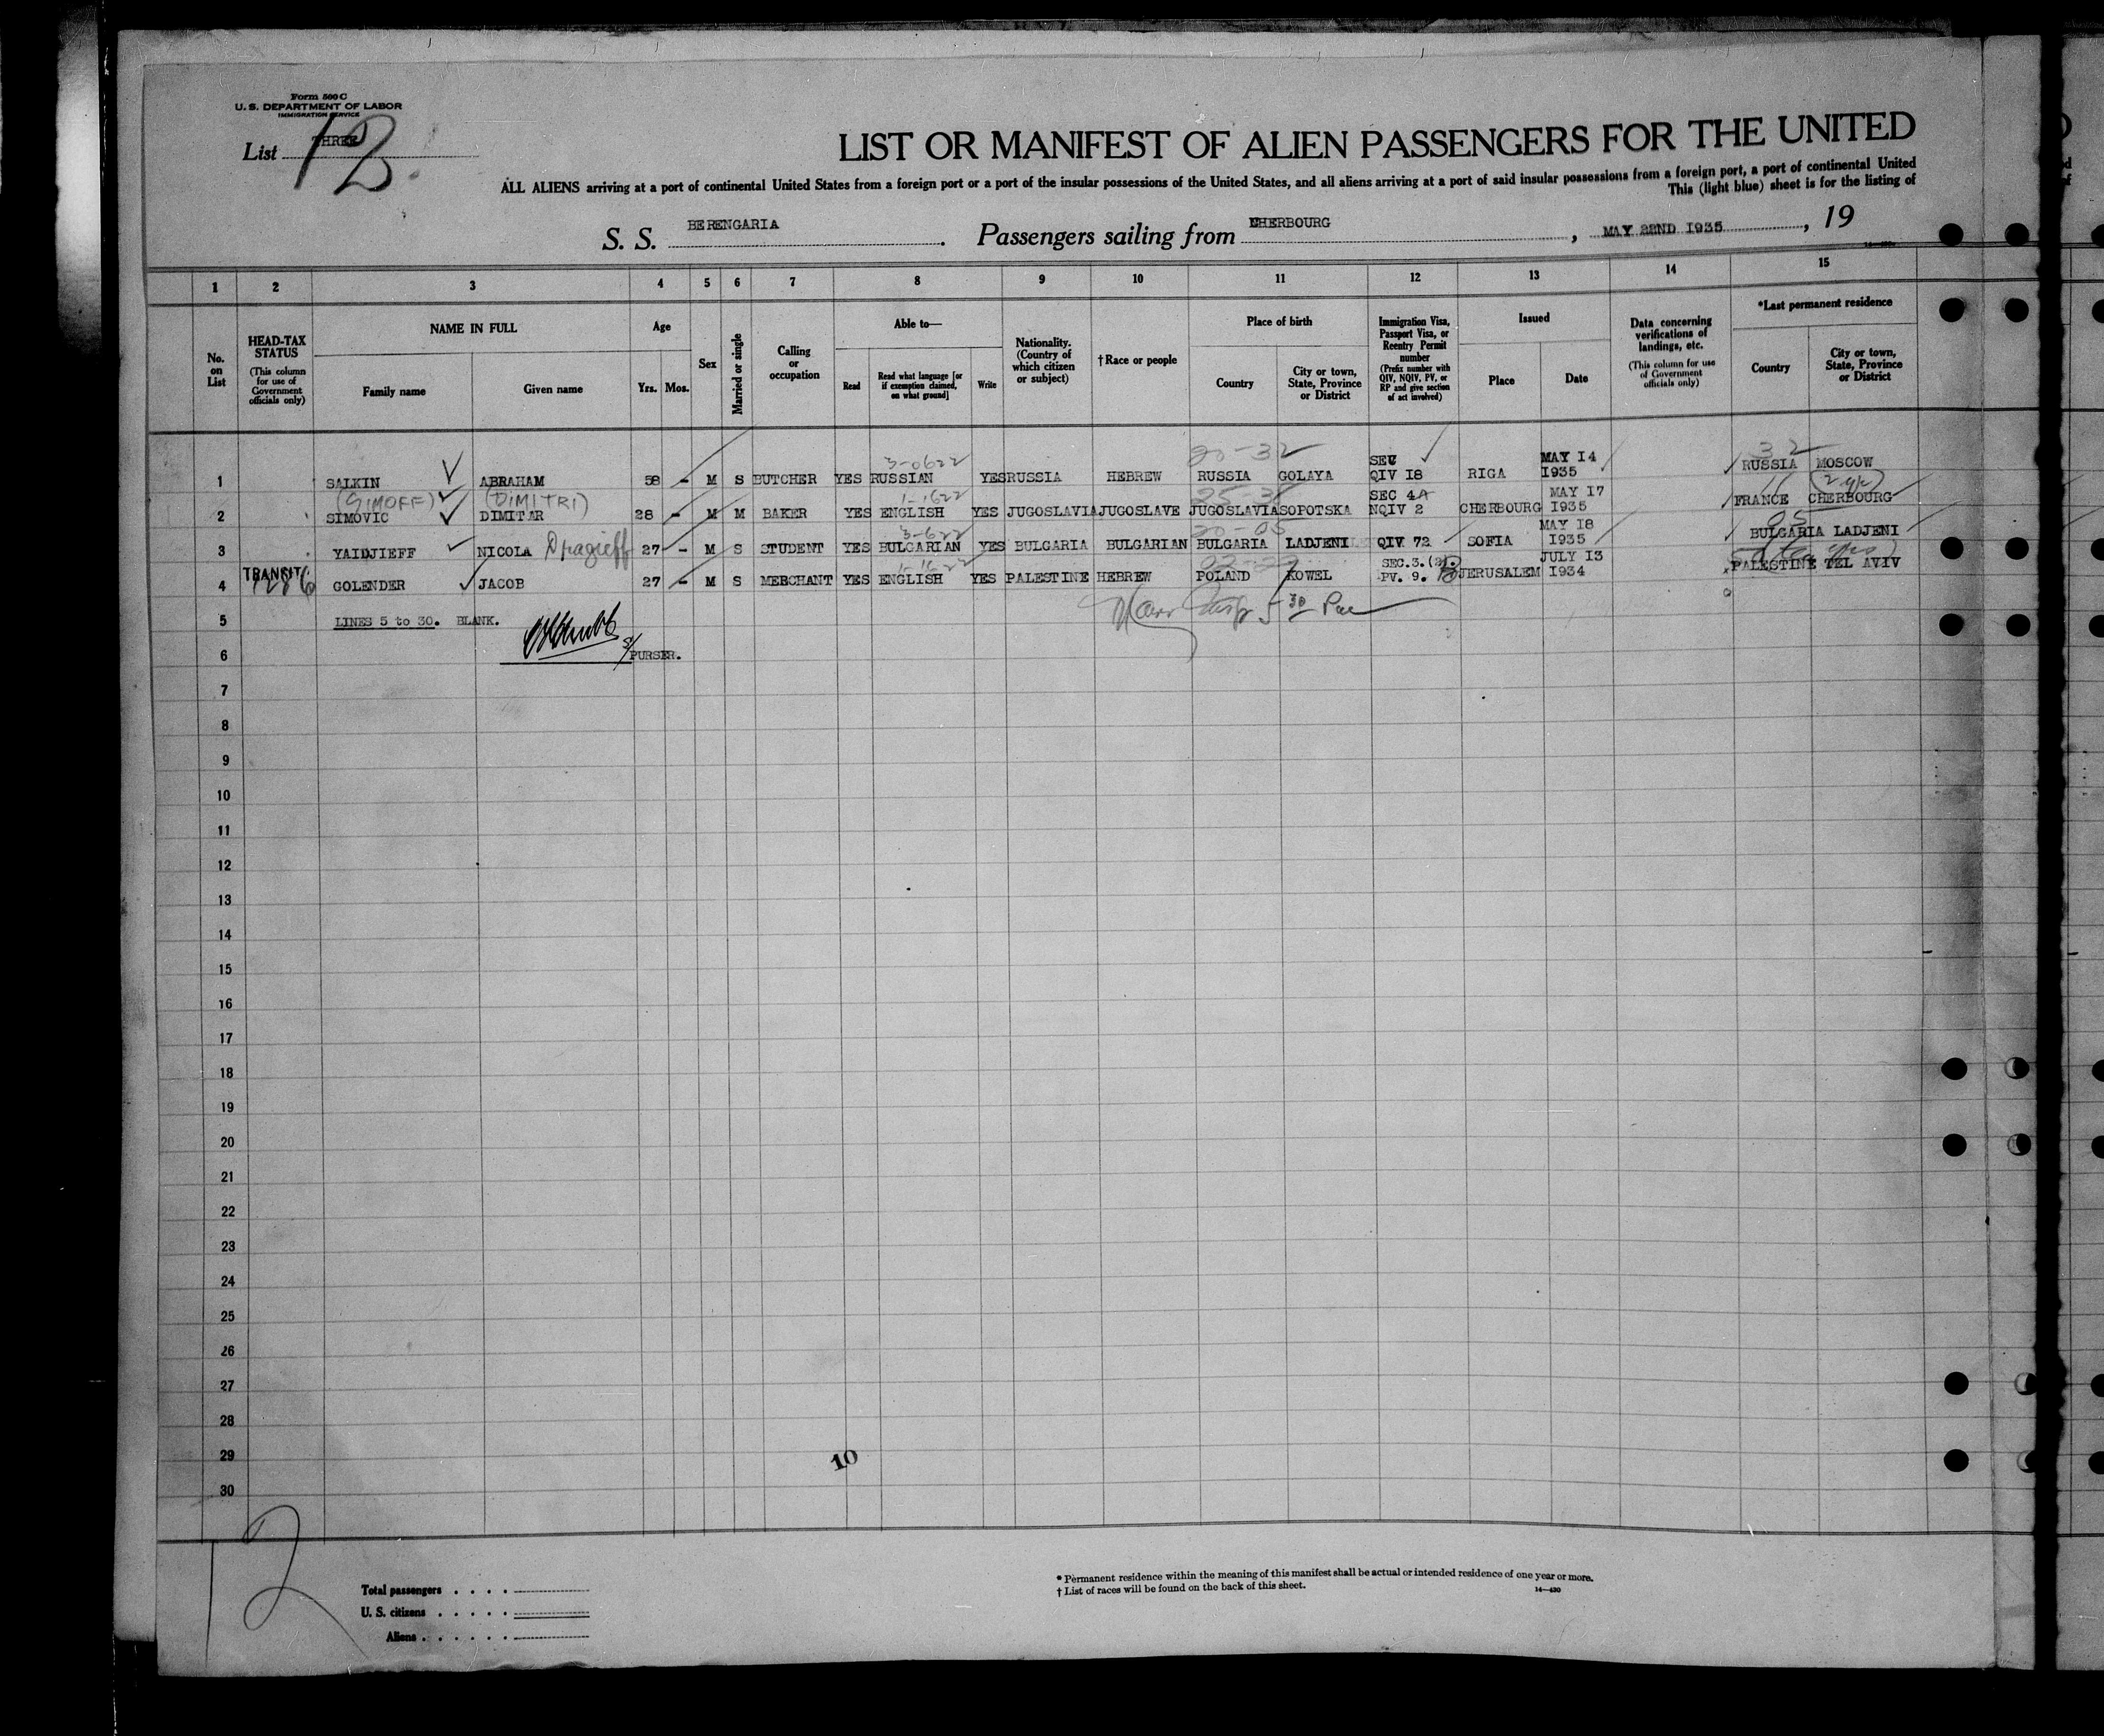 Form 500 C
U. S. DEPARTMENT OF LABOR
IMMIGRATION SERVICE
List THREE 12
LIST OR MANIFEST OF ALIEN PASSENGERS FOR THE UNITED
ALL ALIENS arriving at a port of continental United States from a foreign port or a port of the insular possessions of the United States, and all aliens arriving at a port of said insular possessions from a foreign port, a port of continental United
This (light blue) sheet is for the listing of
S. S. BERENGARIA. Passengers sailing from CHERBOURG, MAY 22ND 1935, 19
1 2 3 4 5 6 7 8 9 10 11 12 13 14 15
No. on List
HEAD-TAX STATUS
(This column for use of Government officials only)
NAME IN FULL
Family name Given name
Age
Yrs. Mos.
Sex
Married or single
Calling or occupation
Able to—
Read Read what language [or if exemption claimed, on what ground] Write
Nationality. (Country of which citizen or subject)
†Race or people
Place of birth
Country City or town, State, Province or District
Immigration Visa, Passport Visa, or Reentry Permit number
(Prefix number with QIV, NQIV, PV, or RP and give section of act involved)
Issued
Place Date
Data concerning verifications of landings, etc.
(This column for use of Government officials only)
*Last permanent residence
Country City or town, State, Province or District
3-0622 20-32 SEC MAY 14 32
1 SALKIN ABRAHAM 58 - M S BUTCHER YES RUSSIAN YES RUSSIA HEBREW RUSSIA GOLAYA QIV 18 RIGA 1935 RUSSIA MOSCOW
(SIMOFF) (DIMITRI) 1-1622 SEC 4A MAY 17
2 SIMOVIC DIMITAR 28 - M M BAKER YES ENGLISH YES JUGOSLAVIA JUGOSLAVE JUGOSLAVIA SOPOTSKA NQIV 2 CHERBOURG 1935 FRANCE CHERBOURG
3-622 MAY 18 05
3 YAIDJIEFF NICOLA Dragieff 27 - M S STUDENT YES BULGARIAN YES BULGARIA BULGARIAN BULGARIA LADJENI QIV 72 SOFIA 1935 BULGARIA LADJENI
TRANSIT SEC.3.(2). JULY 13
4 GOLENDER JACOB 27 - M S MERCHANT YES ENGLISH YES PALESTINE HEBREW POLAND KOWEL PV. 9. JERUSALEM 1934 PALESTINE TEL AVIV
5 LINES 5 to 30. BLANK.
6 S/PURSER.
7
8
9
10
11
12
13
14
15
16
17
18
19
20
21
22
23
24
25
26
27
28
29
10
30
12
Total passengers . . . .
U. S. citizens . . . . .
Aliens . . . . . .
* Permanent residence within the meaning of this manifest shall be actual or intended residence of one year or more.
† List of races will be found on the back of this sheet.
14—430